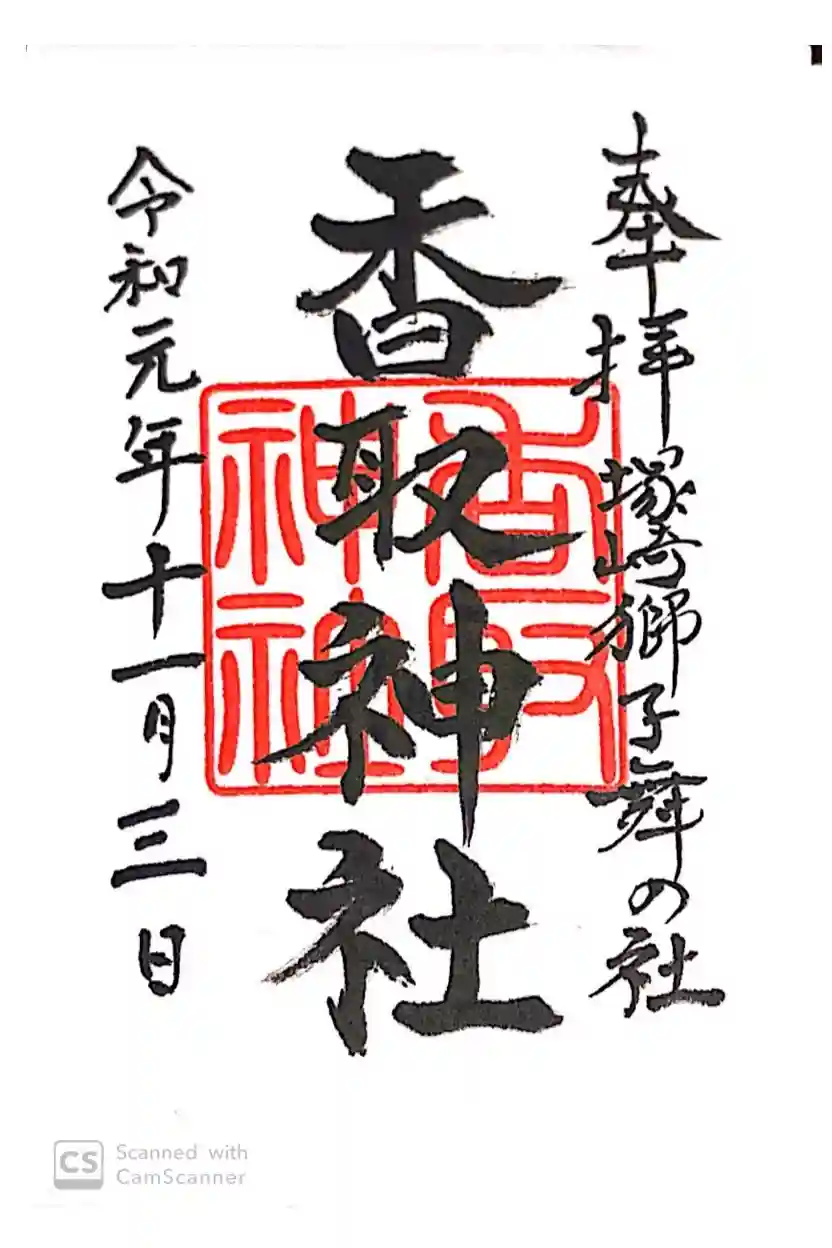 奉拝 塚崎獅子舞の社
香取神社
令和元年十一月三日
香取
神社
CS Scanned with
CamScanner